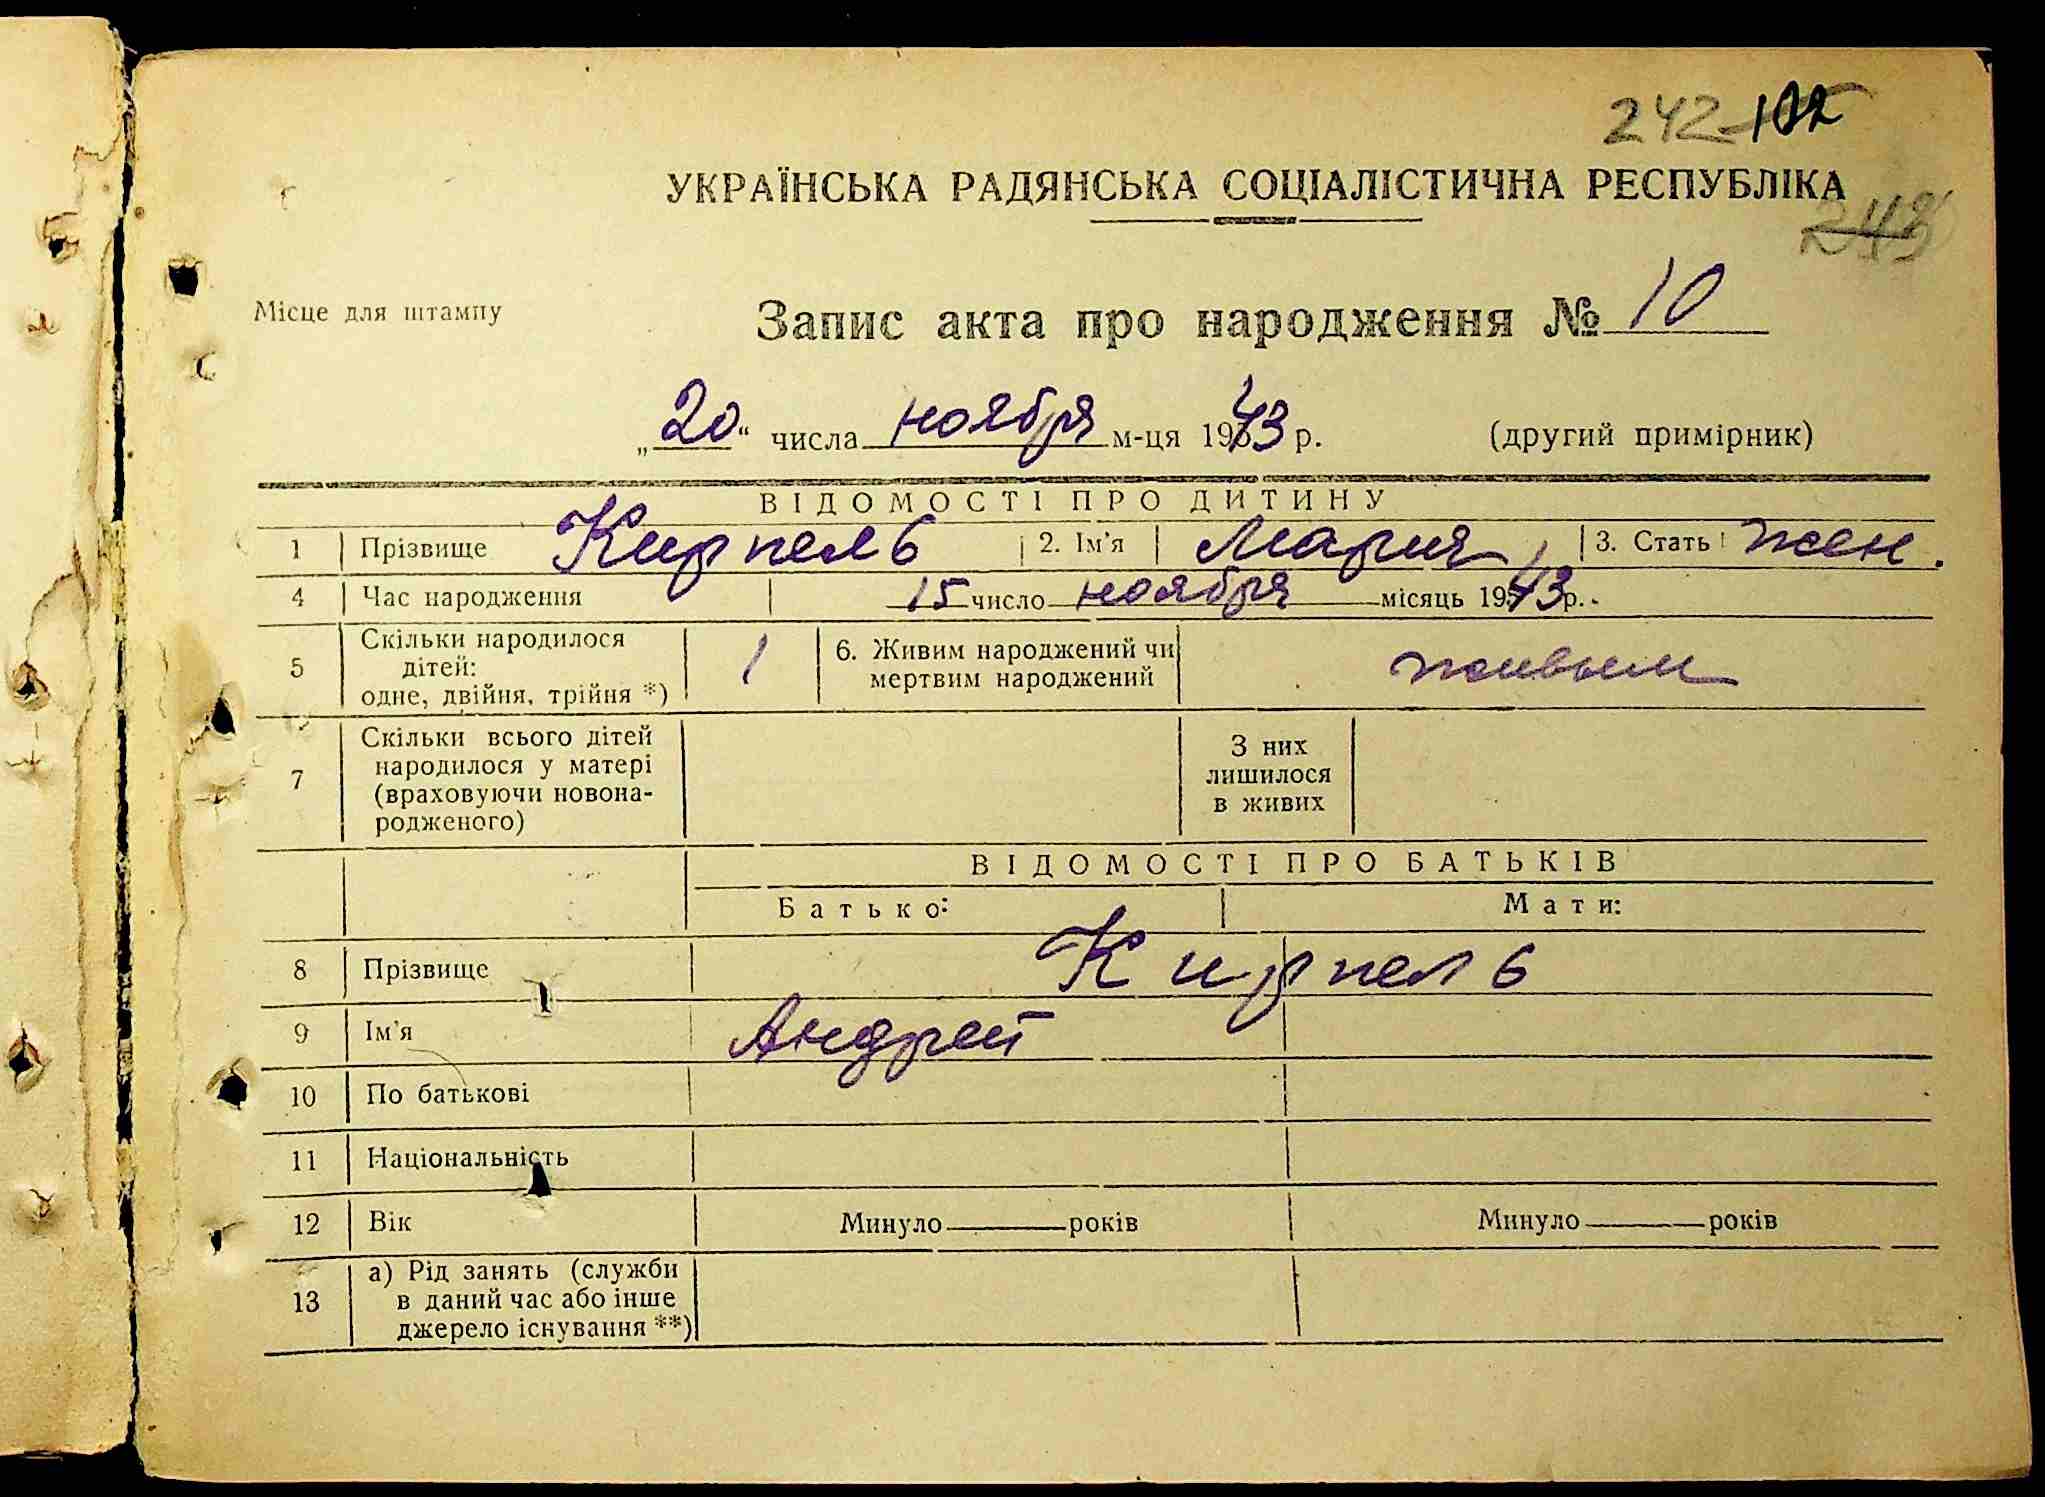 242 102
УКРАЇНСЬКА РАДЯНСЬКА СОЦІАЛІСТИЧНА РЕСПУБЛІКА
243
Місце для штампу
Запис акта про народження № 10
„20“ числа ноября м-ця 1943 р. (другий примірник)
ВІДОМОСТІ ПРО ДИТИНУ
1 Прізвище Кирпель 2. Ім’я Мария 3. Стать жен.
4 Час народження 15 число ноября місяць 1943 р.
5 Скільки народилося дітей: одне, двійня, трійня *) 1 6. Живим народжений чи мертвим народжений живым
7 Скільки всього дітей народилося у матері (враховуючи новона-родженого) З них лишилося в живих
ВІДОМОСТІ ПРО БАТЬКІВ
Батько: Мати:
8 Прізвище Кирпель
9 Ім’я Андрей
10 По батькові
11 Національність
12 Вік Минуло років Минуло років
13 а) Рід занять (служби в даний час або інше джерело існування **)